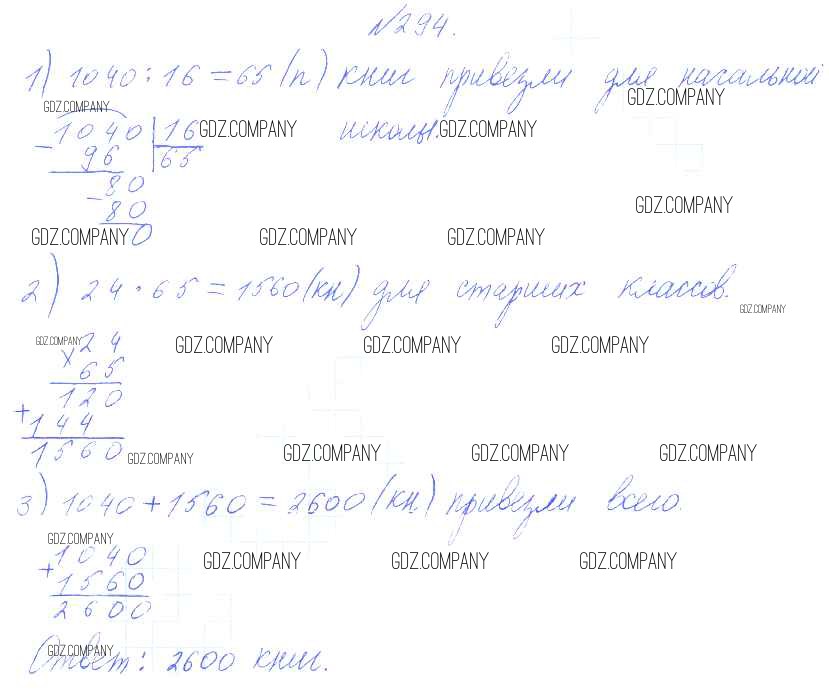 №294.
1) 1040 : 16 = 65 (п) книг привезли для начальной
GDZ.COMPANY GDZ.COMPANY
1040 | 16 GDZ.COMPANY школы. GDZ.COMPANY
- 96 65
80
- 80 GDZ.COMPANY
GDZ.COMPANY 0 GDZ.COMPANY GDZ.COMPANY
2) 24 · 65 = 1560 (кн) для старших классов.
GDZ.COMPANY
GDZ.COMPANY 24 GDZ.COMPANY GDZ.COMPANY GDZ.COMPANY
× 65
120
+ 144
1560 GDZ.COMPANY GDZ.COMPANY GDZ.COMPANY GDZ.COMPANY
3) 1040 + 1560 = 2600 (кн) привезли всего.
GDZ.COMPANY
1040 GDZ.COMPANY GDZ.COMPANY GDZ.COMPANY
+ 1560
2600
GDZ.COMPANY
Ответ: 2600 книг.